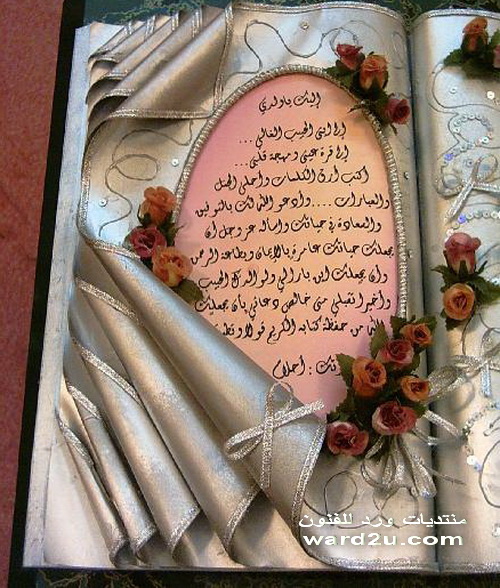 إليك يا ولدي
إلى ابني الحبيب الغالي...
إلى قرة عيني ومهجة قلبي...
اكتب أرق الكلمات وأحلى الجمل
والعبارات....وأدعو الله لك بالتوفيق
والسعادة في حياتك وأسأله عز وجل أن
يجعلك حياتك عامرة بالإيمان وبطاعة الرحمن
وأن يجعلك ابن بارا لي ولوالدك الحبيب
وأخيرا تقبلي مني خالص دعائي بأن يجعلك
من حفظة كتابه الكريم قولا و
: أحلام
منتديات ورد للفنون
ward2u.com